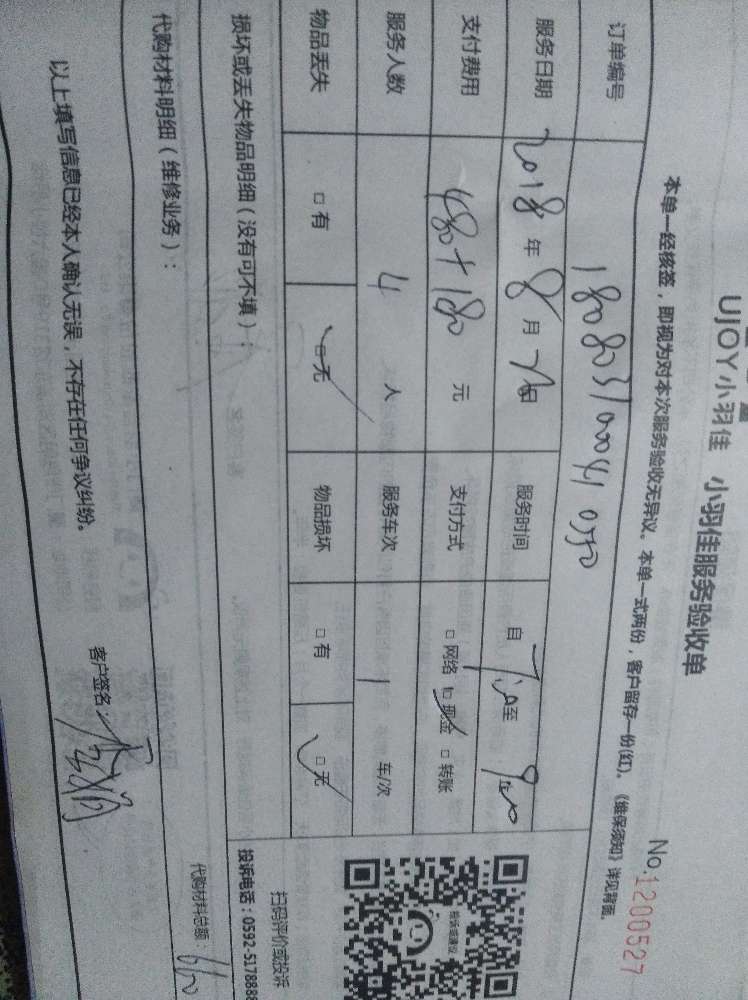 UJOY小羽佳 小羽佳服务验收单
No.1200527
本单一经核签，即视为对本次服务验收无异议。本单一式两份，客户留存一份(红)。《维保须知》详见背面。
订单编号
服务日期 2018年8月 日 服务时间 自 至
支付费用 480+180元 支付方式 □网络 □现金 □转账
服务人数 4人 服务车次 1 车/次
物品丢失 □有 □无 物品损坏 □有 □无
损坏或丢失物品明细（没有可不填）：
代购材料明细（维修业务）：
代购材料总额：
以上填写信息已经本人确认无误，不存在任何争议纠纷。
客户签名：
投诉或建议
扫码评价或投诉
投诉电话：0592-5178888